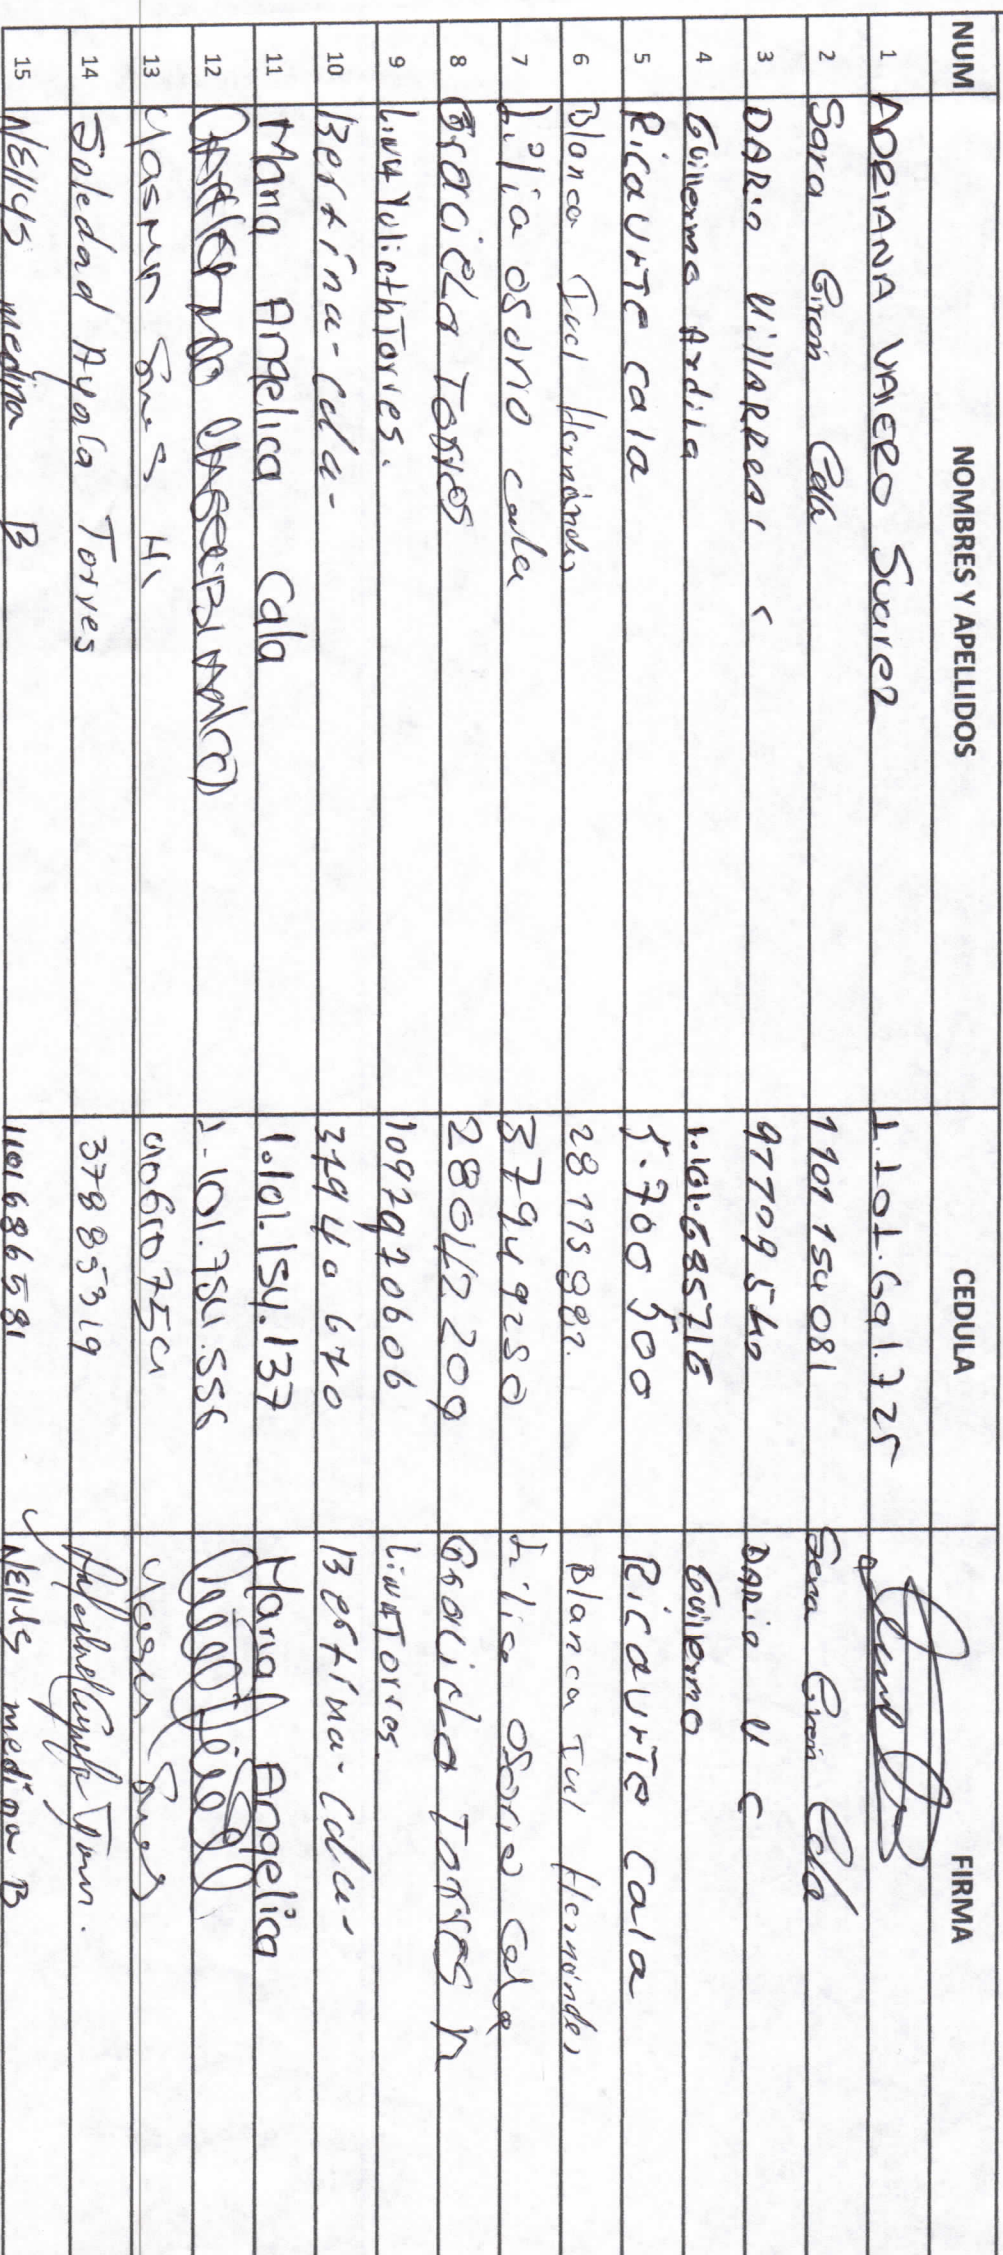 NUM NOMBRES Y APELLIDOS CEDULA FIRMA
1 ADRIANA VAlERO Suarez 1.101.691.725
2 Sara Giron Cala 1101154081 Sara Giron Cala
3 DARio VillARREAl C 977095440 DARio V C
4 Guillermo Ardila 1.101.685716 Guillermo
5 Ricaurte cala 5.700500 Ricaurte Cala
6 Blanca Iul Hernández 28175882. Blanca Iul Hernández
7 Lilia osorio cala 37949250 Lilia osorio Cala
8 Graciela Torres 28012209 Graciela Torres n
9 LinA YuliethTorres. 1092920606 LinATorres.
10 Bertina-cala- 37944o 670 Bertina-Cala-
11 Maria Angelica Cala 1.101.154.137 Maria Angelica
12 1.101.754.556
13 Yasmin
14 Soledad Ayala Torres 37885319
15 NEllYS medina B 1101686581 NEllYS medina B